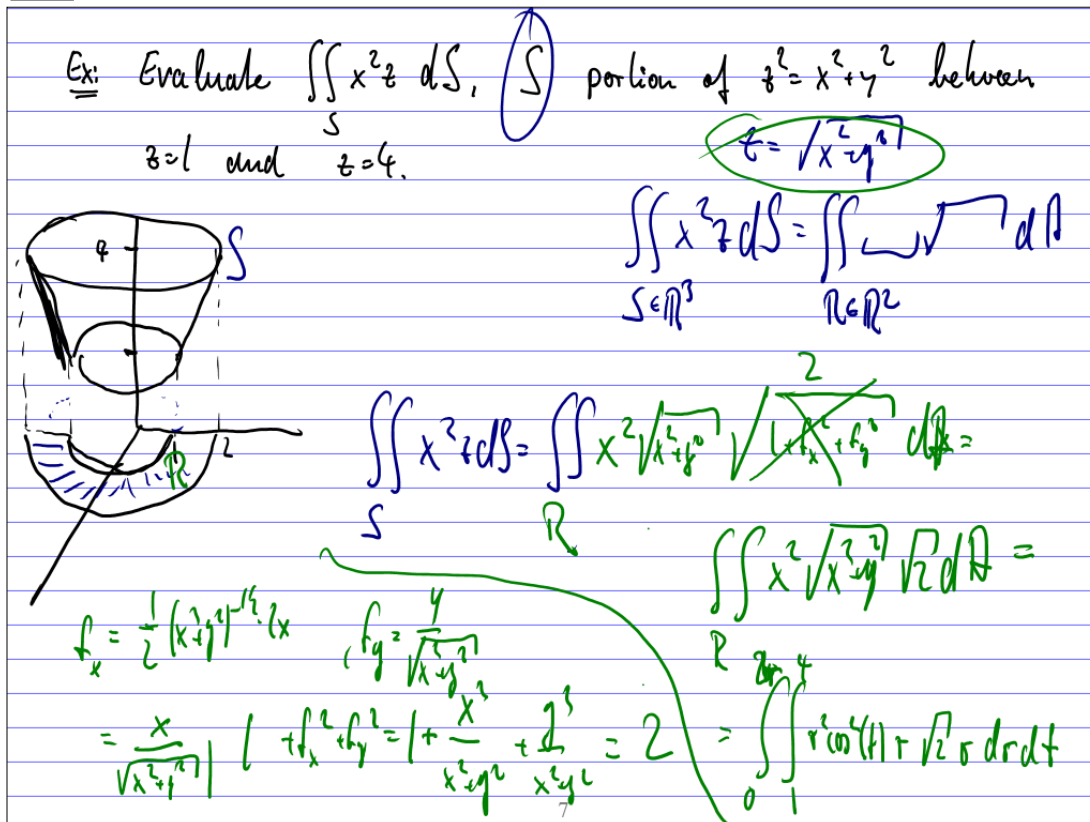 Ex: Evaluate ∬_S x²z dS, S portion of z² = x²+y² between
z=1 and z=4.
z = √(x²+y²)
∬_{S∈ℝ³} x²z dS = ∬_{R∈ℝ²} ⎵ √ dA
4
S
R
2
∬_S x²z dS = ∬_R x² √(x²+y²) √(1+f_x²+f_y²) dA =
2
∬_R x² √(x²+y²) √2 dA =
f_x = 1/2 (x²+y²)^(-1/2) · 2x , f_y = y/√(x²+y²)
= x/√(x²+y²) | 1 + f_x² + f_y² = 1 + x²/(x²+y²) + y²/(x²+y²) = 2
= ∫_0^{2π} ∫_1^4 r²cos²(t) r √2 r dr dt
7